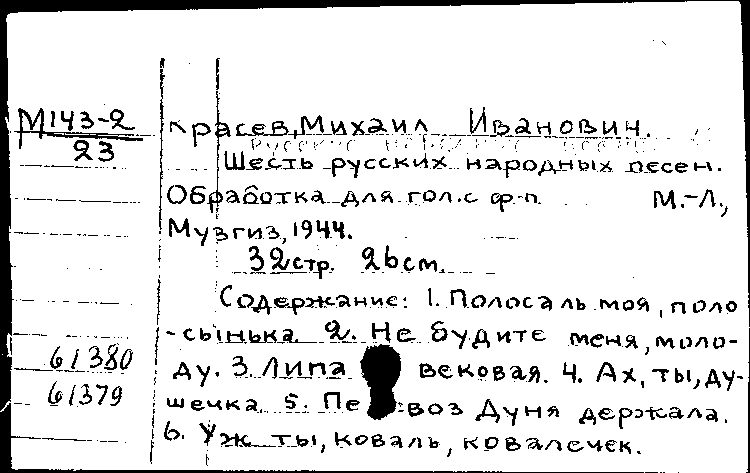 М143-2
23
Красев, Михаил Иванович.
Шесть русских народных песен.
Обработка для гол. с ф-п. М.-Л.,
Музгиз, 1944.
32 стр. 26 см.
Содержание: 1. Полоса ль моя, поло
-сынька. 2. Не будите меня, моло-
ду. 3. Липа вековая. 4. Ах, ты, ду-
шечка. 5. Пе воз Дуня держала.
6. Уж ты, коваль, ковалечек.
61380
61379